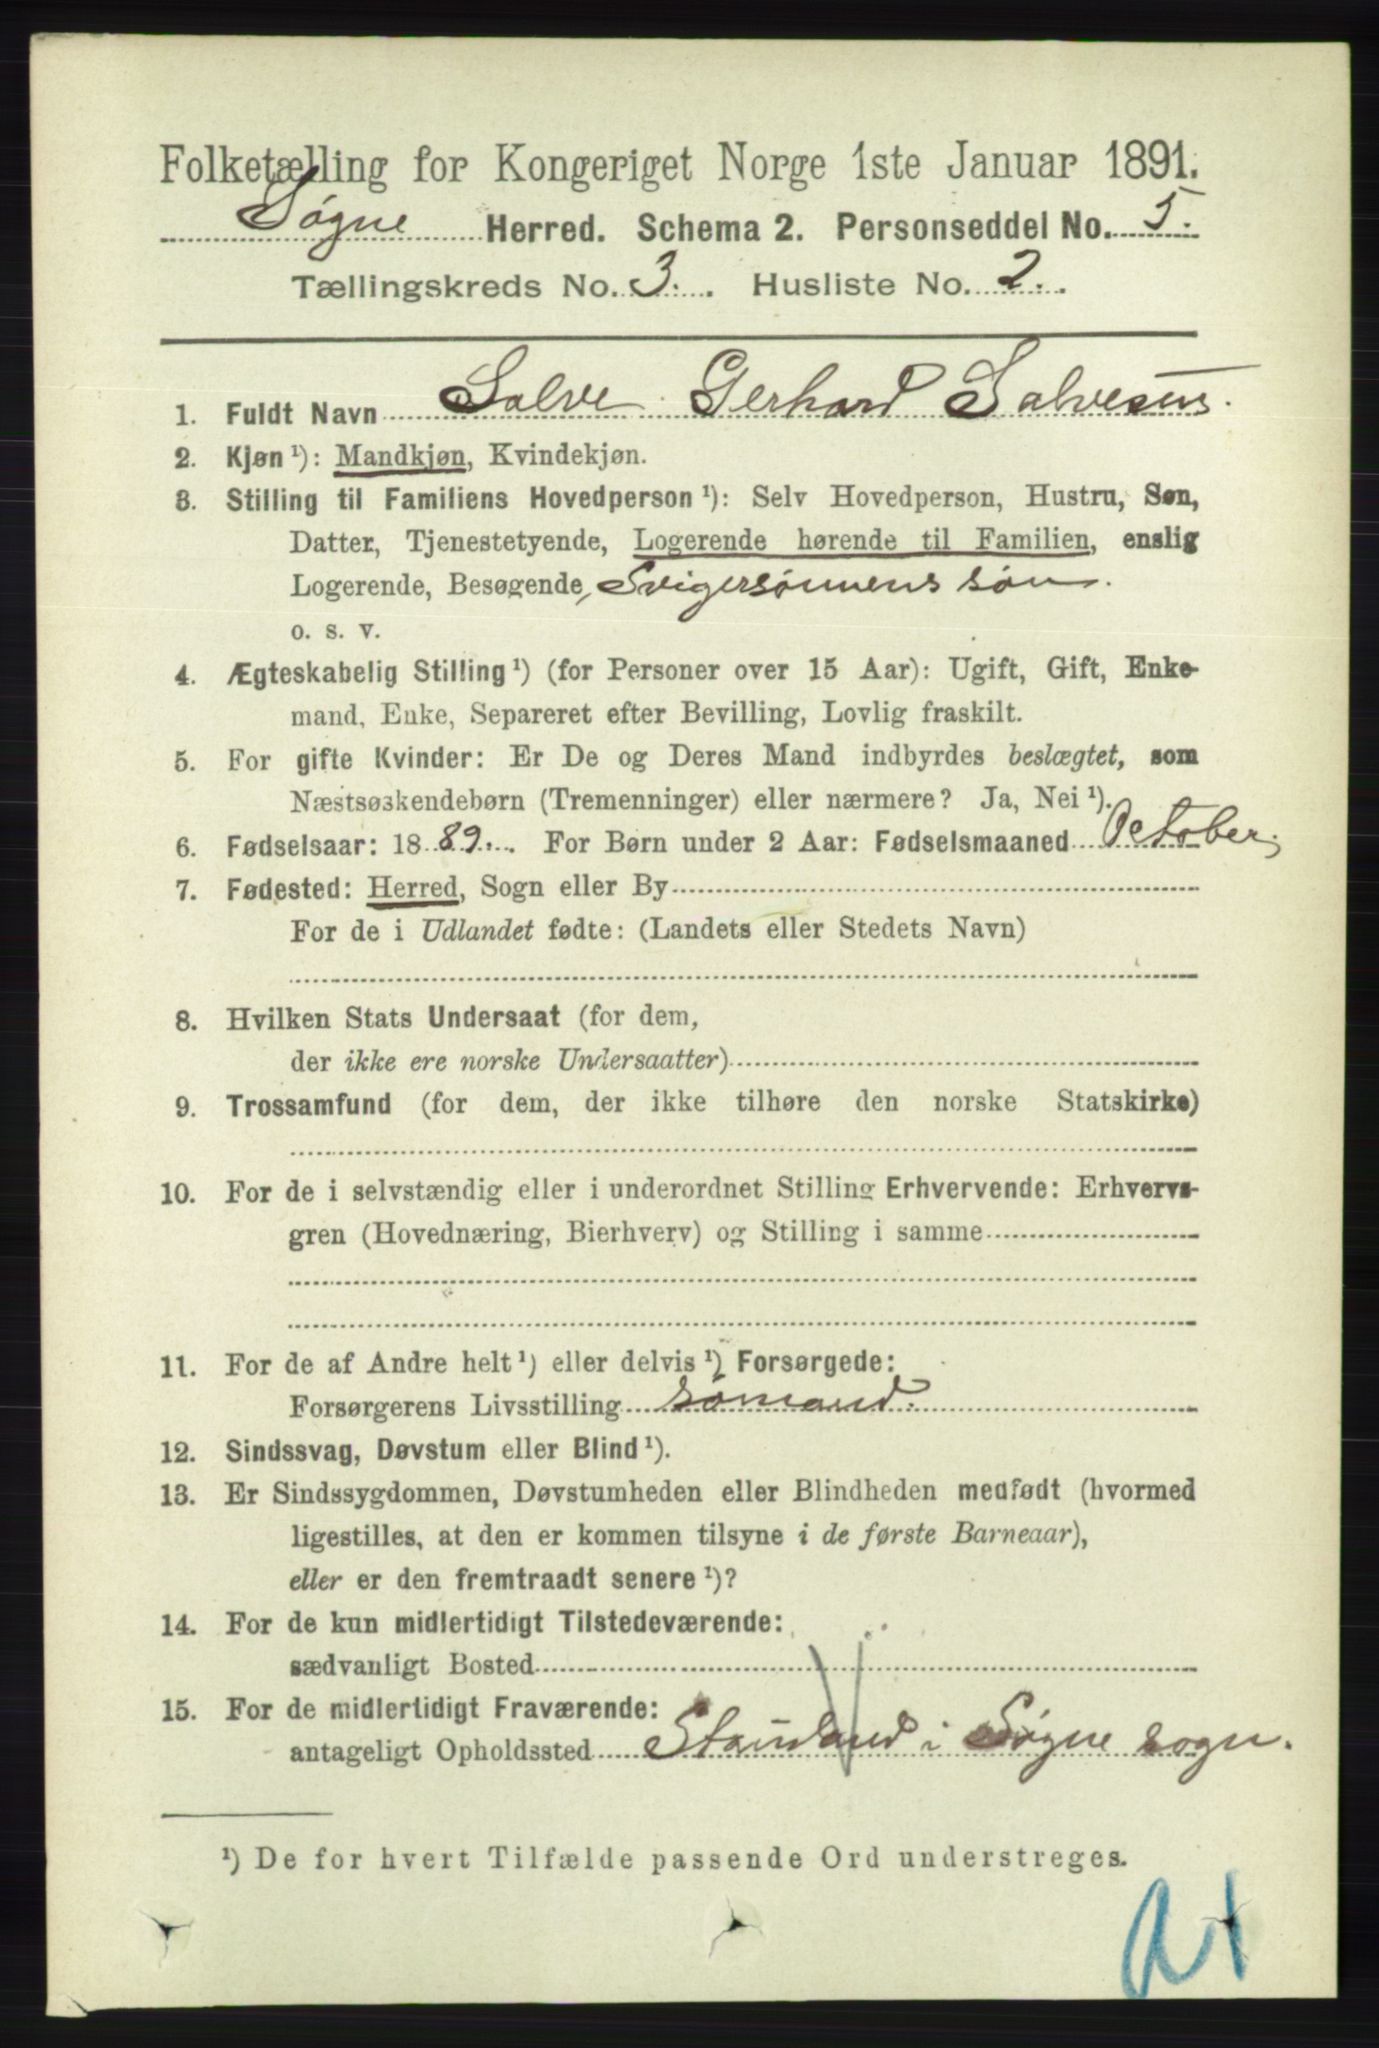 Folketælling for Kongeriget Norge 1ste Januar 1891.
Søgne Herred. Schema 2. Personseddel No. 5.
Tællingskreds No. 3. Husliste No. 2.
1. Fuldt Navn Salve Gerhard Salvesen.
2. Kjøn ¹): Mandkjøn, Kvindekjøn.
3. Stilling til Familiens Hovedperson ¹): Selv Hovedperson, Hustru, Søn,
Datter, Tjenestetyende, Logerende hørende til Familien, enslig
Logerende, Besøgende, Svigersønnens søn.
o. s. v.
4. Ægteskabelig Stilling ¹) (for Personer over 15 Aar): Ugift, Gift, Enke-
mand, Enke, Separeret efter Bevilling, Lovlig fraskilt.
5. For gifte Kvinder: Er De og Deres Mand indbyrdes beslægtet, som
Næstsøskendebørn (Tremenninger) eller nærmere? Ja, Nei ¹).
6. Fødselsaar: 1889. For Børn under 2 Aar: Fødselsmaaned October,
7. Fødested: Herred, Sogn eller By
For de i Udlandet fødte: (Landets eller Stedets Navn)
8. Hvilken Stats Undersaat (for dem,
der ikke ere norske Undersaatter)
9. Trossamfund (for dem, der ikke tilhøre den norske Statskirke)
10. For de i selvstændig eller i underordnet Stilling Erhvervende: Erhvervs-
gren (Hovednæring, Bierhverv) og Stilling i samme
11. For de af Andre helt ¹) eller delvis ¹) Forsørgede:
Forsørgerens Livsstilling sømand.
12. Sindssvag, Døvstum eller Blind ¹).
13. Er Sindssygdommen, Døvstumheden eller Blindheden medfødt (hvormed
ligestilles, at den er kommen tilsyne i de første Barneaar),
eller er den fremtraadt senere ¹)?
14. For de kun midlertidigt Tilstedeværende:
sædvanligt Bosted
15. For de midlertidigt Fraværende:
antageligt Opholdssted Stausland i Søgne sogn.
¹) De for hvert Tilfælde passende Ord understreges.